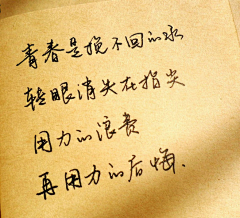 青春是挽不回的水
转眼消失在指尖
用力的浪费
再用力的后悔.